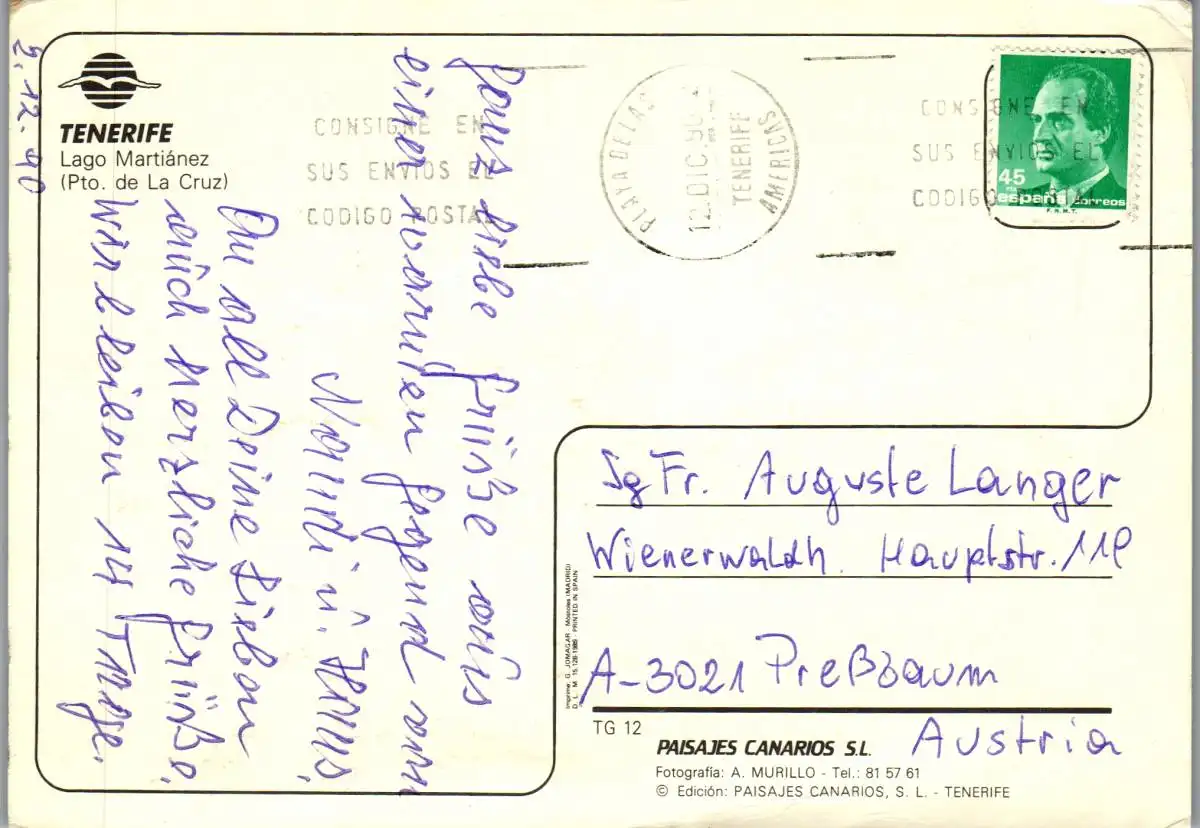 TENERIFE
Lago Martiánez
(Pto. de La Cruz)
9.12.90
Ganz liebe Grüße aus
einer warmen Gegend von
u. Hans,
An all Deine Lieben
auch herzliche Grüße,
Wir bleiben 14 Tage.
CONSIGNE EN
SUS ENVIOS EL
CODIGO POSTAL
PLAYA DE LAS AMERICAS
12 DIC. 90
TENERIFE
CONSIGNE EN
SUS ENVIOS EL
CODIGO POSTAL
45
PTA
españa correos
F.N.M.T.
Sg Fr. Auguste Langer
Wienerwaldh. Hauptstr. 11e
A-3021 Preßbaum
Austria
Imprime: G. JOMAGAR - Móstoles (MADRID)
D. L. M. 15.128-1985 - PRINTED IN SPAIN
TG 12
PAISAJES CANARIOS S.L.
Fotografía: A. MURILLO - Tel.: 81 57 61
© Edición: PAISAJES CANARIOS, S. L. - TENERIFE